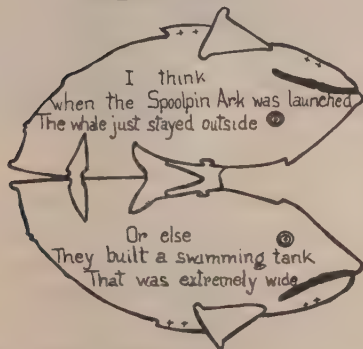 I think
when the Spoolpin Ark was launched
The whale just stayed outside
Or else
They built a swimming tank
That was extremely wide